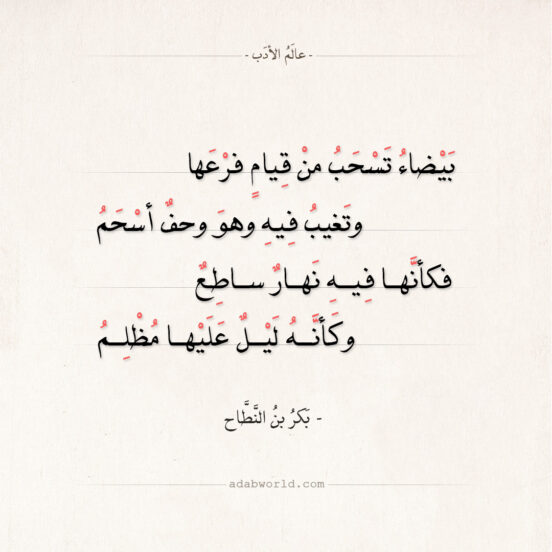 - عالَمُ الأدَب -
بَيْضاءُ تَسْحَبُ منْ قِيامٍ فرْعَها
وتَغيبُ فِيهِ وهوَ وحفٌ أسْحَمُ
فكأنَّها فِيهِ نَهارٌ ساطِعٌ
وكَأنَّهُ لَيْلٌ عَلَيْها مُظْلِمُ
- بَكرُ بنُ النَّطَّاح
adabworld.com